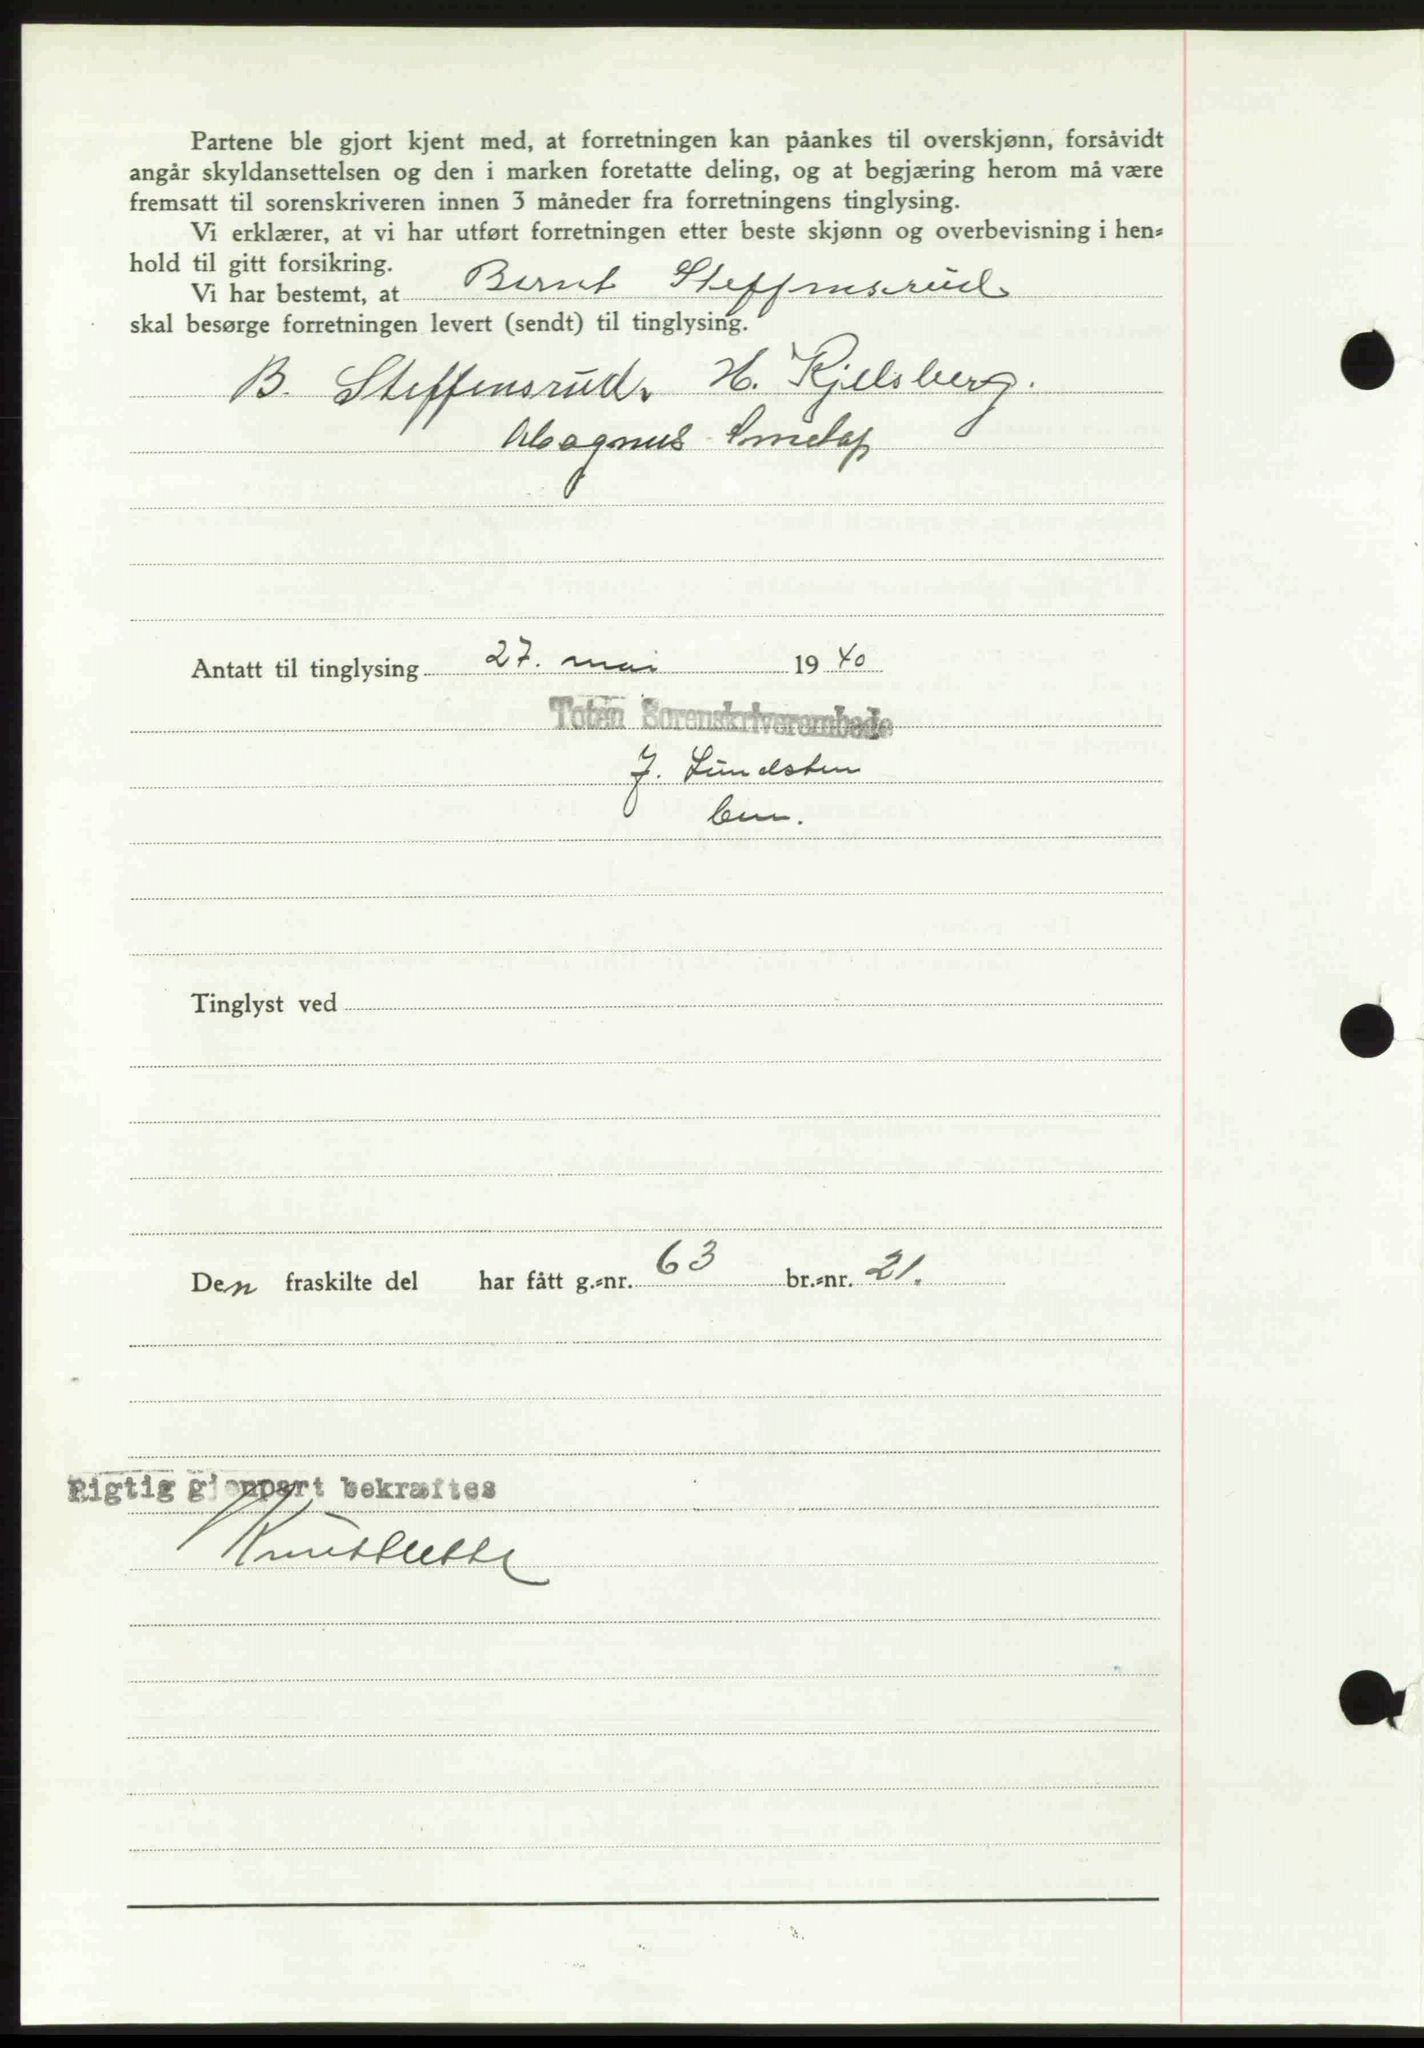 Partene ble gjort kjent med, at forretningen kan påankes til overskjønn, forsåvidt
angår skyldansettelsen og den i marken foretatte deling, og at begjæring herom må være
fremsatt til sorenskriveren innen 3 måneder fra forretningens tinglysing.
Vi erklærer, at vi har utført forretningen etter beste skjønn og overbevisning i hen=
hold til gitt forsikring.
Vi har bestemt, at Bernt Steffensrud
skal besørge forretningen levert (sendt) til tinglysing.
B. Steffensrud. H. Kjelsberg.
Magnus
Antatt til tinglysing 27. mai 1940
Toten Sorenskriverembede
J. Lundsten
Tinglyst ved
Den fraskilte del har fått g.=nr. 63 br.=nr. 21.
Rigtig gjenpart bekræftes